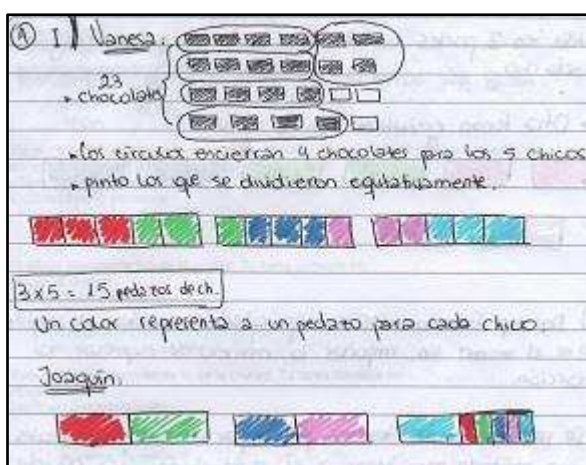 ④ I) Vanesa:
23
• chocolates
• Los círculos encierran 4 chocolates para los 5 chicos
• pinto los que se dividieron equitativamente.
3 x 5 = 15 pedazos de ch.
Un color representa a un pedazo para cada chico.
Joaquín.